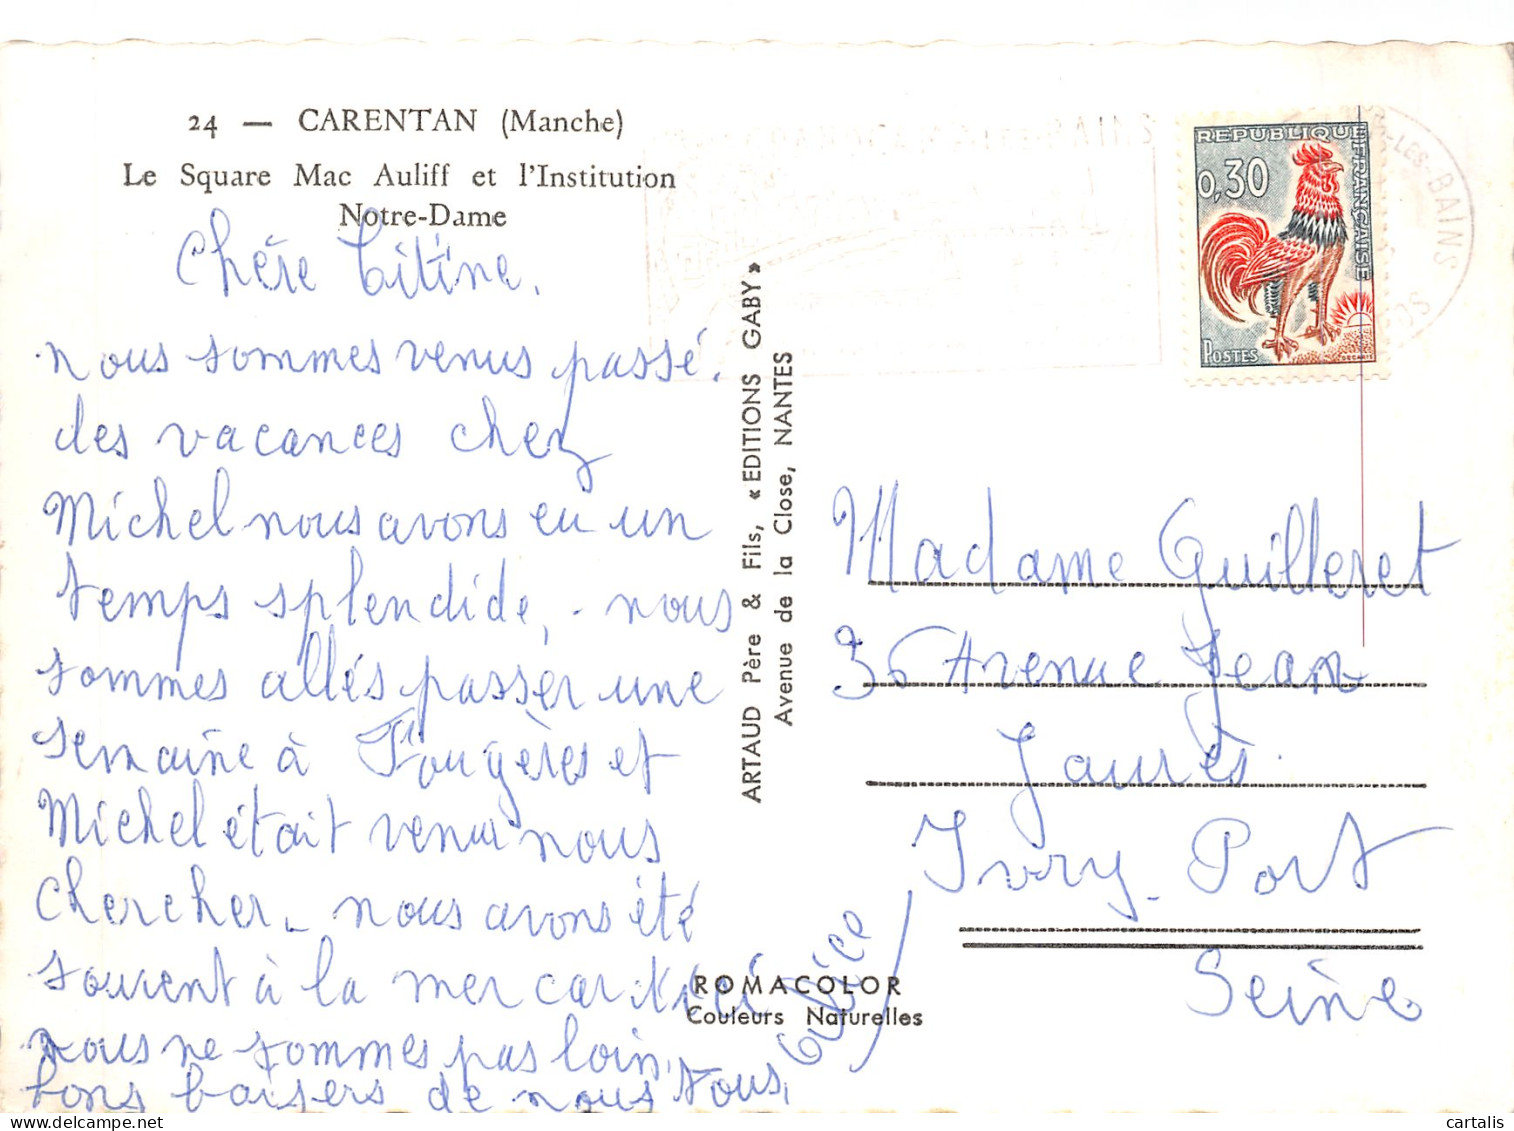 24 — CARENTAN (Manche)
Le Square Mac Auliff et l'Institution
Notre-Dame
Chère Titine.
nous sommes venus passé.
des vacances chez
Michel nous avons eu un
temps splendide, - nous
sommes allés passer une
semaine à Fougères et
Michel était venu nous
chercher. nous avons été
souvent à la mer car ici
nous ne sommes pas loin,
bons baisers de nous tous,
ARTAUD Père & Fils, « EDITIONS GABY »
Avenue de la Close, NANTES
ROMACOLOR
Couleurs Naturelles
REPUBLIQUE
FRANÇAISE
0,30
POSTES
LES-BAINS
Madame Guilleret
36 Avenue Jean
Jaurès
Ivry-Port
Seine
cartalis